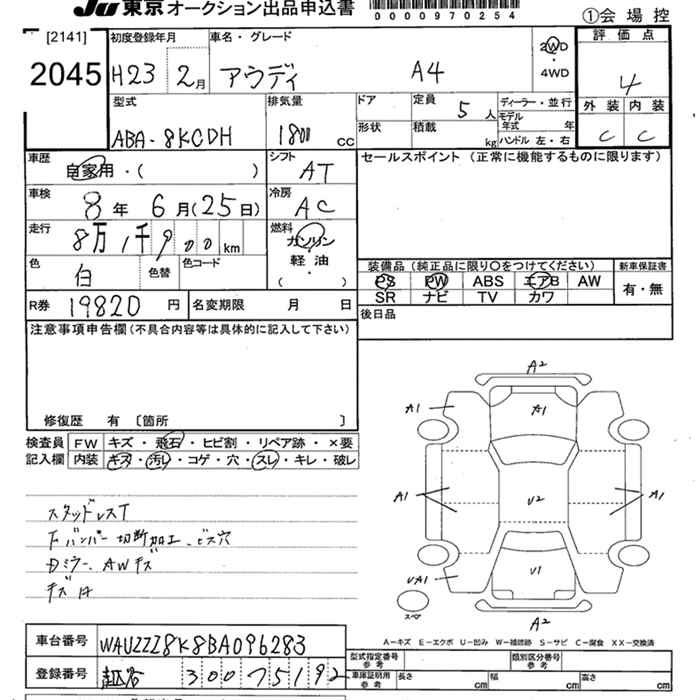 JU 東京オークション出品申込書
0000970254
①会場控
[2141]
2045
初度登録年月
H23 2月
車名・グレード
アウディ A4
2WD
・
4WD
評価点
4
外装 内装
C C
型式
ABA-8KCDH
排気量
1800 cc
ドア
形状
定員 5人
積載 kg
ディーラー・並行
モデル年式 年
ハンドル 左・右
車歴
自家用・( )
シフト
AT
セールスポイント (正常に機能するものに限ります)
車検
8年 6月(25日)
冷房
AC
走行
8万1千900km
燃料
ガソリン
軽・油
・
( )
色
白
色替
色コード
装備品 (純正品に限り〇をつけてください)
新車保証書
PS PW ABS エアB AW
SR ナビ TV カワ
有・無
R券 19820円
名変期限 月 日
後日品
注意事項申告欄 (不具合内容等は具体的に記入して下さい)
修復歴 有 〔箇所 〕
検査員記入欄
FW キズ・飛石・ヒビ割・リペア跡・×要
内装 キズ・汚レ・コゲ・穴・スレ・キレ・破レ
スタッドレスT
Fバンパー切断加工、ビス穴
Dミラー、AWキズ
A2
A1 A1
A1 U2 A1
UA1 U1
スペア
A2
A-キズ E-エクボ U-凹み W-補修跡 S-サビ C-腐食 XX-交換済
車台番号 WAUZZZ8K8BA096283
登録番号 越谷 300 7519 2
型式指定番号 参考
類別区分番号 参考
車庫証明用 参考
長さ cm 幅 cm 高さ cm